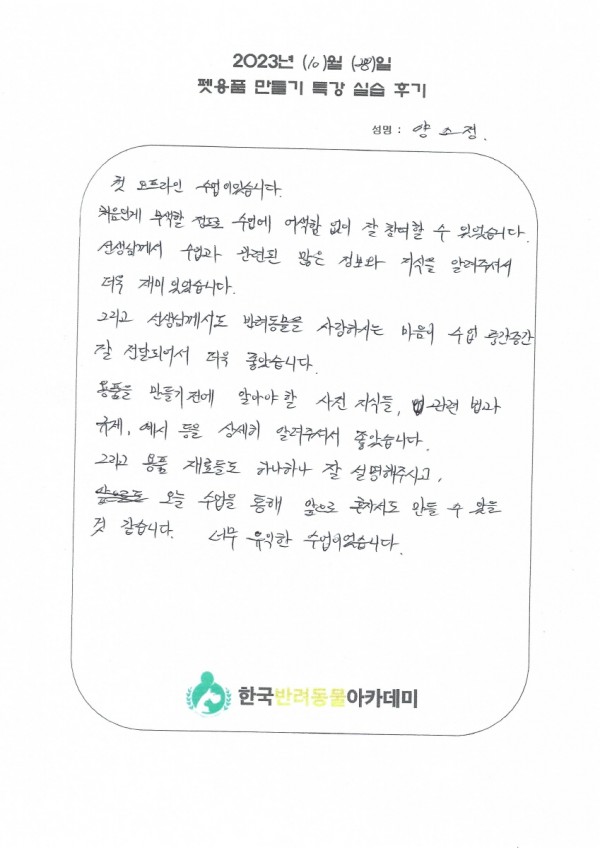 2023년 (10)월 (28)일
펫용품 만들기 특강 실습 후기
성명 : 양소정.
첫 오프라인 수업이었습니다.
처음인게 무색할 정도로 수업에 어색함 없이 잘 참여할 수 있었습니다.
선생님께서 수업과 관련된 많은 정보와 지식을 알려주셔서
더욱 재미있었습니다.
그리고 선생님께서도 반려동물을 사랑하시는 마음이 수업 중간중간
잘 전달되어서 더욱 좋았습니다.
용품을 만들기 전에 알아야 할 사전 지식들, 관련 법과
규제, 예시 등을 상세히 알려주셔서 좋았습니다.
그리고 용품 재료들도 하나하나 잘 설명해주시고,
오늘 수업을 통해 앞으로 혼자서도 만들 수 있을
것 같습니다. 너무 유익한 수업이었습니다.
한국반려동물아카데미